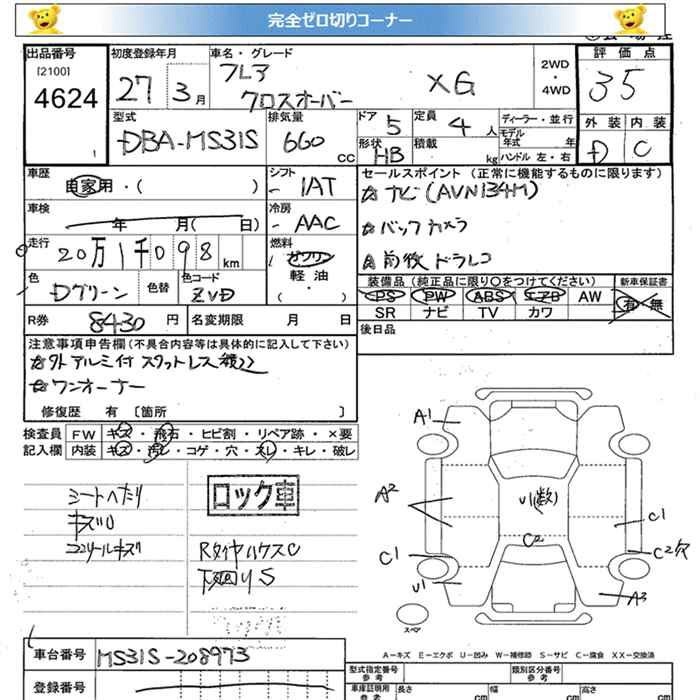 完全ゼロ切りコーナー
出品番号 初度登録年月 車名・グレード 2WD・4WD 評価点
[2100]
4624
27 3月 フレア クロスオーバー XG 35
型式 排気量 ドア 5 定員 4 人 ディーラー・並行 外装 内装
DBA-MS31S 660 CC 形状 HB 積載 kg モデル年式 年 D C
ハンドル 左・右
車歴 シフト セールスポイント(正常に機能するものに限ります)
自家用・( ) - IAT ☆ナビ(AVN134M)
車検 冷房 ☆バックカメラ
年 月( 日) - AAC ☆前後ドラレコ
走行 燃料
20万1千098km ガソリン
軽油
・( )
色 色替 色コード 装備品(純正品に限り○をつけてください) 新車保証書
Dグリーン ZVD PS PW ABS エアB AW 有・無
SR ナビ TV カワ
R券 8430 円 名変期限 月 日 後日品
注意事項申告欄(不具合内容等は具体的に記入して下さい)
☆外アルミ付 スタットレス積
☆ワンオーナー
修復歴 有 [箇所 ]
検査員 FW キズ・飛石・ヒビ割・リペア跡・×要
記入欄 内装 キズ・汚レ・コゲ・穴・スレ・キレ・破レ
シートヘタリ
キズ
コンソールキズ
ロック車
RタイヤハウスC
下回りS
A1
A2
U1(数)
C2
C1
C1
C2穴
U1
A3
スペア
A−キズ E−エクボ U−凹み W−補修跡 S−サビ C−腐食 XX−交換済
車台番号 MS31S-208973
型式指定番号 類別区分番号
参考
登録番号 車庫証明用 長さ 幅 高さ
参考 cm cm cm